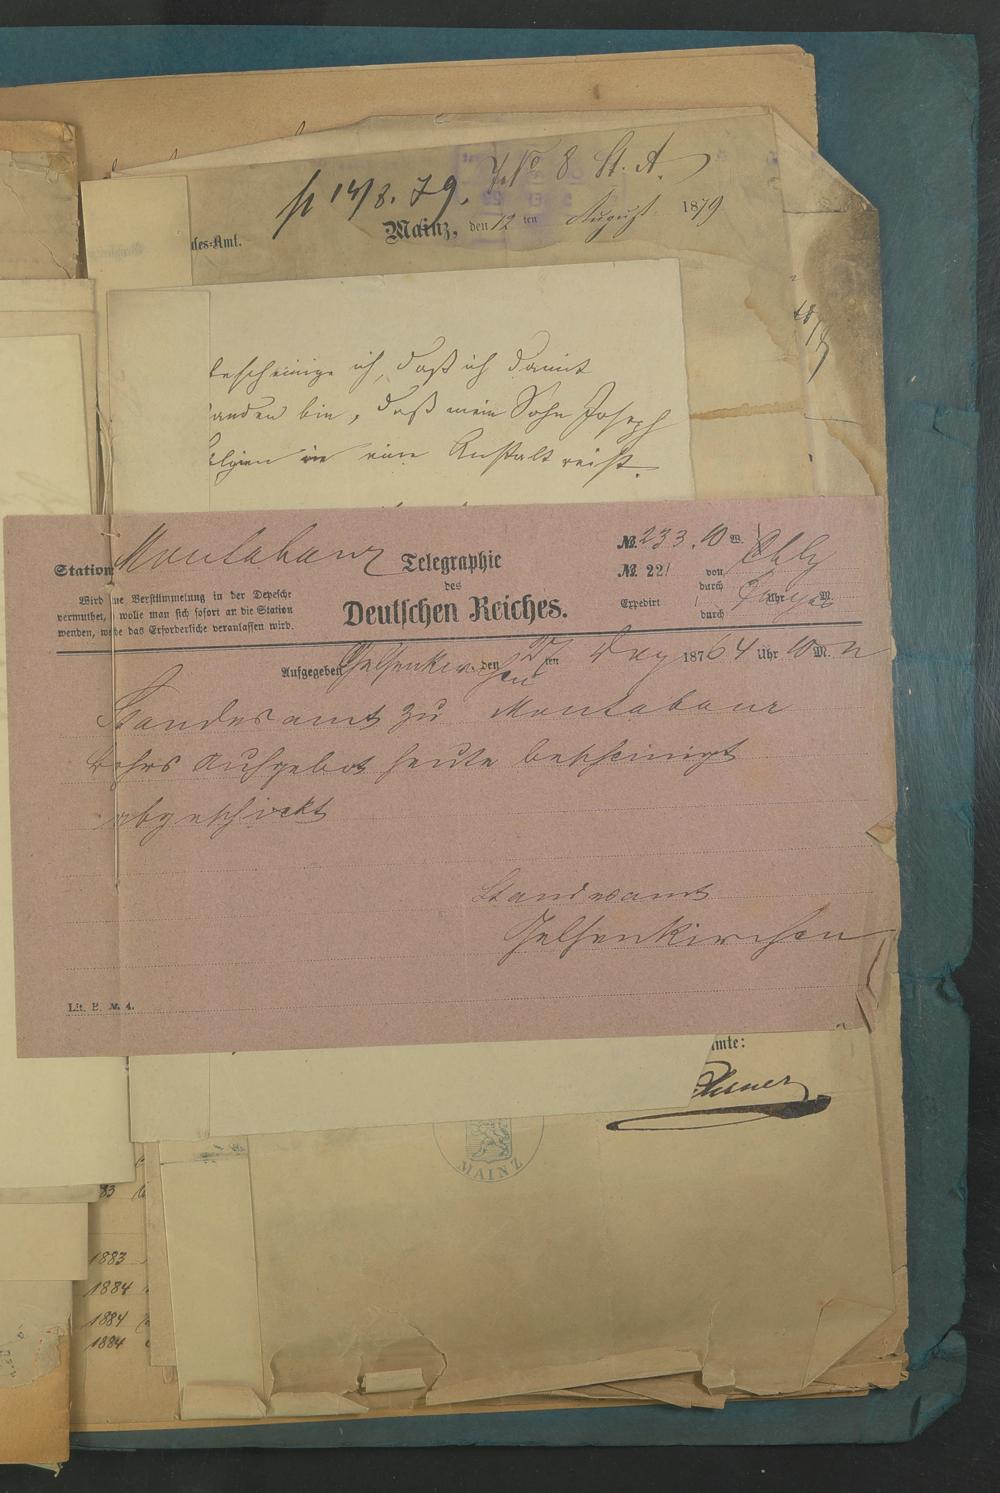 p 14/8. 79. J. No 8 St. A.
des-Amt.
Mainz, den 12 ten August 1879
bescheinige ich, daß ich damit
anden bin, daß mein Sohn Joseph
in eine Anstalt reist.
Station Montabaur
Telegraphie
des
Deutschen Reiches.
Wird ne Verstümmelung in der Depesche
vermuthet, wolle man sich sofort an die Station
wenden, we he das Erforderliche veranlassen wird.
№. 233. 10 W.
№. 221 von
durch
Expedirt Uhr M.
durch
Aufgegeben Gelsenkirchen den ten 187 4 Uhr 10 M. N
Standesamt zu Montabaur
Aufgebot heute bescheinigt
abgeschickt
Standesamt
Gelsenkirchen
Lit. B. № 4.
mte:
MAINZ
83
1883
1884
1884
1884